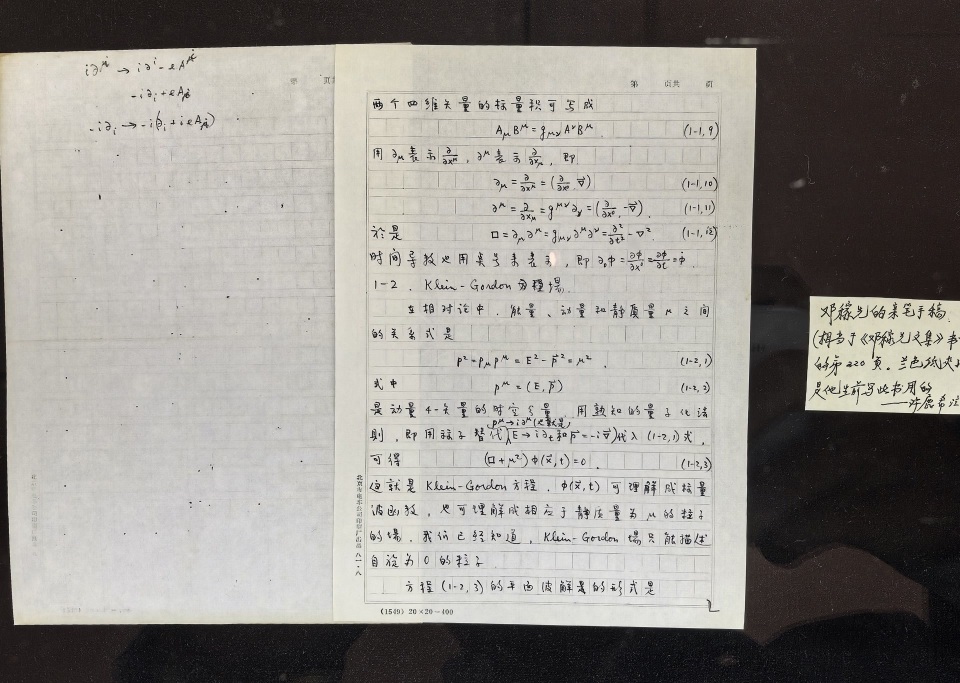 i∂^μ → i∂^i - eA^μ
-i∂_i + eA_i
-i∂_i → -i(∂_i + ieA_i)
第 页共 页
两个四维矢量的标量积可写成
A_μB^μ = g_μν A^νB^μ. (1-1,9)
用 ∂_μ 表示 ∂/∂x^μ, ∂^μ 表示 ∂/∂x_μ, 即
∂_μ = ∂/∂x^μ = (∂/∂x^0, ∇) (1-1,10)
∂^μ = ∂/∂x_μ = g^μν ∂_ν = (∂/∂x^0, -∇). (1-1,11)
於是 □ = ∂_μ∂^μ = g_μν ∂^μ∂^ν = ∂²/∂t² - ∇². (1-1,12)
时间导数也用点号来表示, 即 ∂_0φ = ∂φ/∂x^0 = ∂φ/∂t = φ̇.
1-2. Klein-Gordon 方程, 场.
在相对论中, 能量、动量和静质量 μ 之间
的关系式是
p² = p_μp^μ = E² - p⃗² = μ². (1-2,1)
式中 p^μ = (E, p⃗) (1-2,2)
是动量4-矢量的时空分量. 用熟知的量子化法
p^μ → i∂^μ (也就是)
则, 即用算子替代 E → i∂_t 和 p⃗ = -i∇⃗) 代入 (1-2,1) 式,
可得 (□ + μ²) φ(x⃗,t) = 0. (1-2,3)
这就是 Klein-Gordon 方程. φ(x⃗,t) 可理解成标量
波函数, 也可理解成相应于静质量为 μ 的粒子
的场. 我们已经知道, Klein-Gordon 场只能描述
自旋为 0 的粒子.
方程 (1-2,3) 的平面波解是的形式是
2
(1549) 20×20=400
北京市电车公司印刷厂出品 八一·八
邓稼先的亲笔手稿.
(相当于《邓稼先文集》书
的第220页. 兰色纸夹
是他生前写此书用的
——许鹿希注